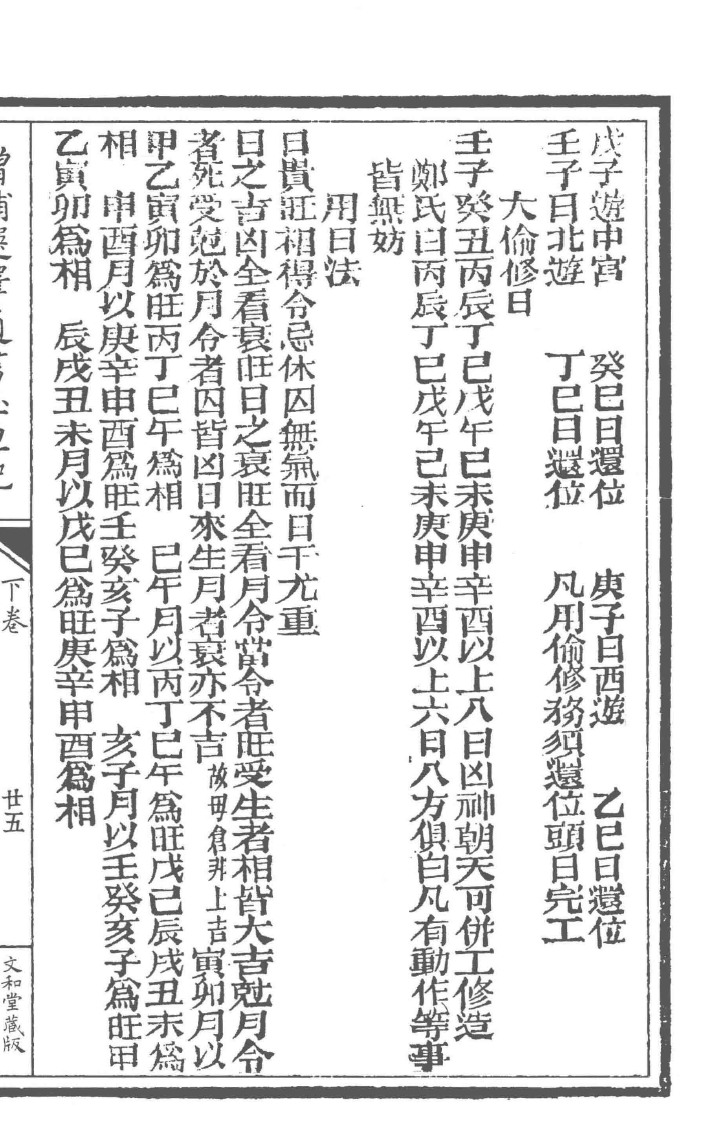 戊子遊中宮　癸巳日還位　庚子日西遊　乙巳日還位
壬子日北遊　丁巳日還位　凡用偷修務須還位頭日完工
大偷修日
壬子癸丑丙辰丁巳戊午己未庚申辛酉以上八日凶神朝天可併工修造
鄭氏曰丙辰丁巳戊午己未庚申辛酉以上六日八方俱白凡有動作等事
皆無妨
用日法
日貴旺相得令忌休囚無氣而日干尤重
日之吉凶全看衰旺日之衰旺全看月令當令者旺受生者相皆大吉尅月令
者死受尅於月令者囚皆凶日來生月者衰亦不吉故母倉非上吉　寅卯月以
甲乙寅卯爲旺丙丁巳午爲相　巳午月以丙丁巳午爲旺戊己辰戌丑未爲
相　申酉月以庚辛申酉爲旺壬癸亥子爲相　亥子月以壬癸亥子爲旺甲
乙寅卯爲相　辰戌丑未月以戊己爲旺庚辛申酉爲相
下卷
廿五
文和堂藏版